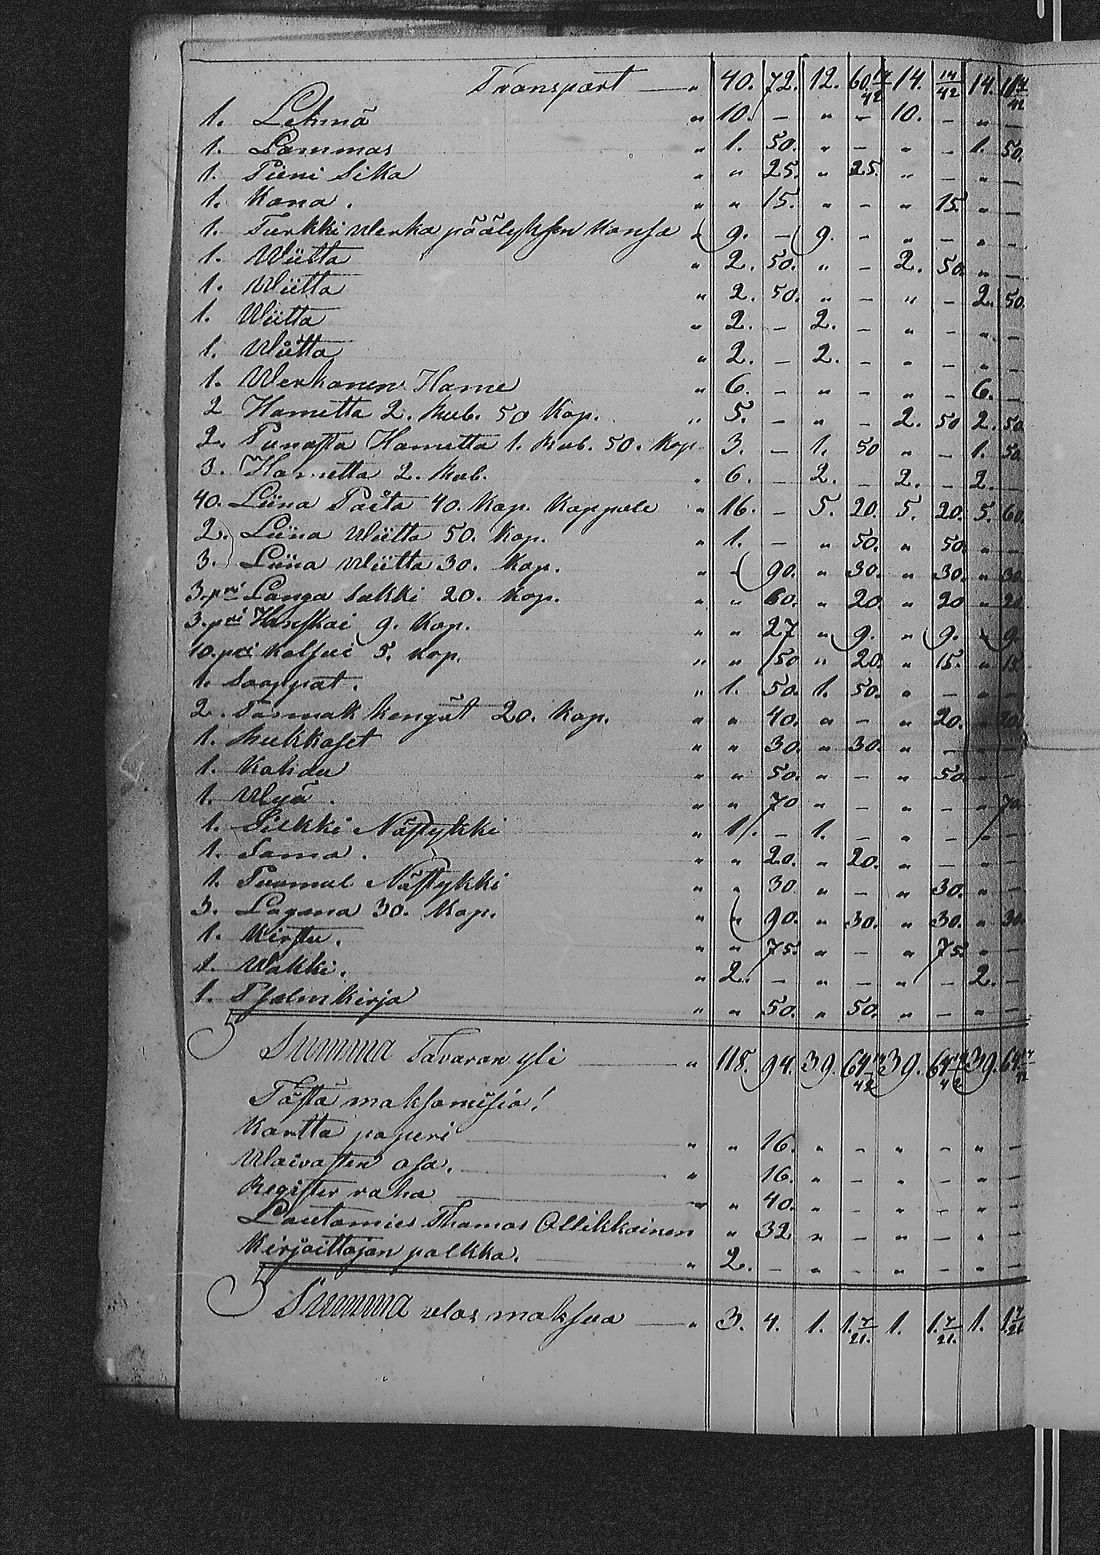 Transpart — " 40. 72. 12. 60 14/42 14. 14/42 14. 10 14/42
1. Lehmä " 10. – " – 10. – " –
1. Lammas " 1. 50. " – " – 1. 50.
1. Pieni Sika " " 25. " 25. " – " –
1. Kana. " " 15. " – " 15. " –
1. Turkki Werka päälyksen kansa " 9. – 9. – " – " –
1. Wiitta " 2. 50. " – 2. 50. " –
1. Wiitta " 2. 50. " – " – 2. 50.
1. Wiitta " 2. – 2. – " – " –
1. Wiitta " 2. – 2. – " – " –
1. Werkanen Hame " 6. – " – " – 6. –
2 Hametta 2. Rub. 50 Kop. " 5. – " – 2. 50 2. 50
2. Punasta Hametta 1. Rub. 50. Kop 3. – 1. 50 " – 1. 50
3. Hametta 2. Rub. " 6. – 2. – 2. – 2. –
40. Liina Paita 40. Kop. Kappale " 16. – 5. 20. 5. 20. 5. 60.
2. Liina Wiitta 50. Kop. " 1. – " 50. " 50. " –
3. Liina Wiitta 30. Kop. " " 90. " 30. " 30. " 30.
3. pri Langa Sukki 20. Kop. " " 60. " 20. " 20 " 20
3. pri Hanskai 9. Kop. " " 27 " 9. " 9. " 9.
10. pri Kalsui 5. Kop. " " 50 " 20. " 15. " 15
1. Saappat. " 1. 50. 1. 50. " – " –
2. Tasmak kengät 20. Kop. " " 40. " – " 20. " 20.
1. Rukkaset " " 30. " 30. " – " –
1. Kahdu " " 50. " – " 50. " –
1. Wyjä. " " 70 " – " – " 70.
1. Silkki Nästykki " 1. – 1. – " – " –
1. Sama. " " 20. " 20. " – " –
1. Puumul Nästykki " " 30. " – " 30. " –
3. Lagana 30. Kop. " " 90. " 30. " 30. " 30
1. Kirstu. " " 75. " – " 75. " –
1. Wakki. " 2. – " – " – 2. –
1. Psalmkirja " " 50. " 50. " – " –
Summa Tavaran yli — " 118. 94. 39. 64 14/42 39. 64 14/42 39. 64 14/42
Tästä maksamisia!
Kartta paperi — " " 16. " – " – " –
Waivasten osa. — " 16. " – " – " –
Register raha — " " 40. " – " – " –
Lautamies Thomas Ollikkainen " 32 " – " – " –
Kirjoittajan palkka. — " 2. – " – " – " –
Summa ulos maksua — " 3. 4. 1. 1. 7/21. 1. 1. 7/21. 1. 1. 7/21